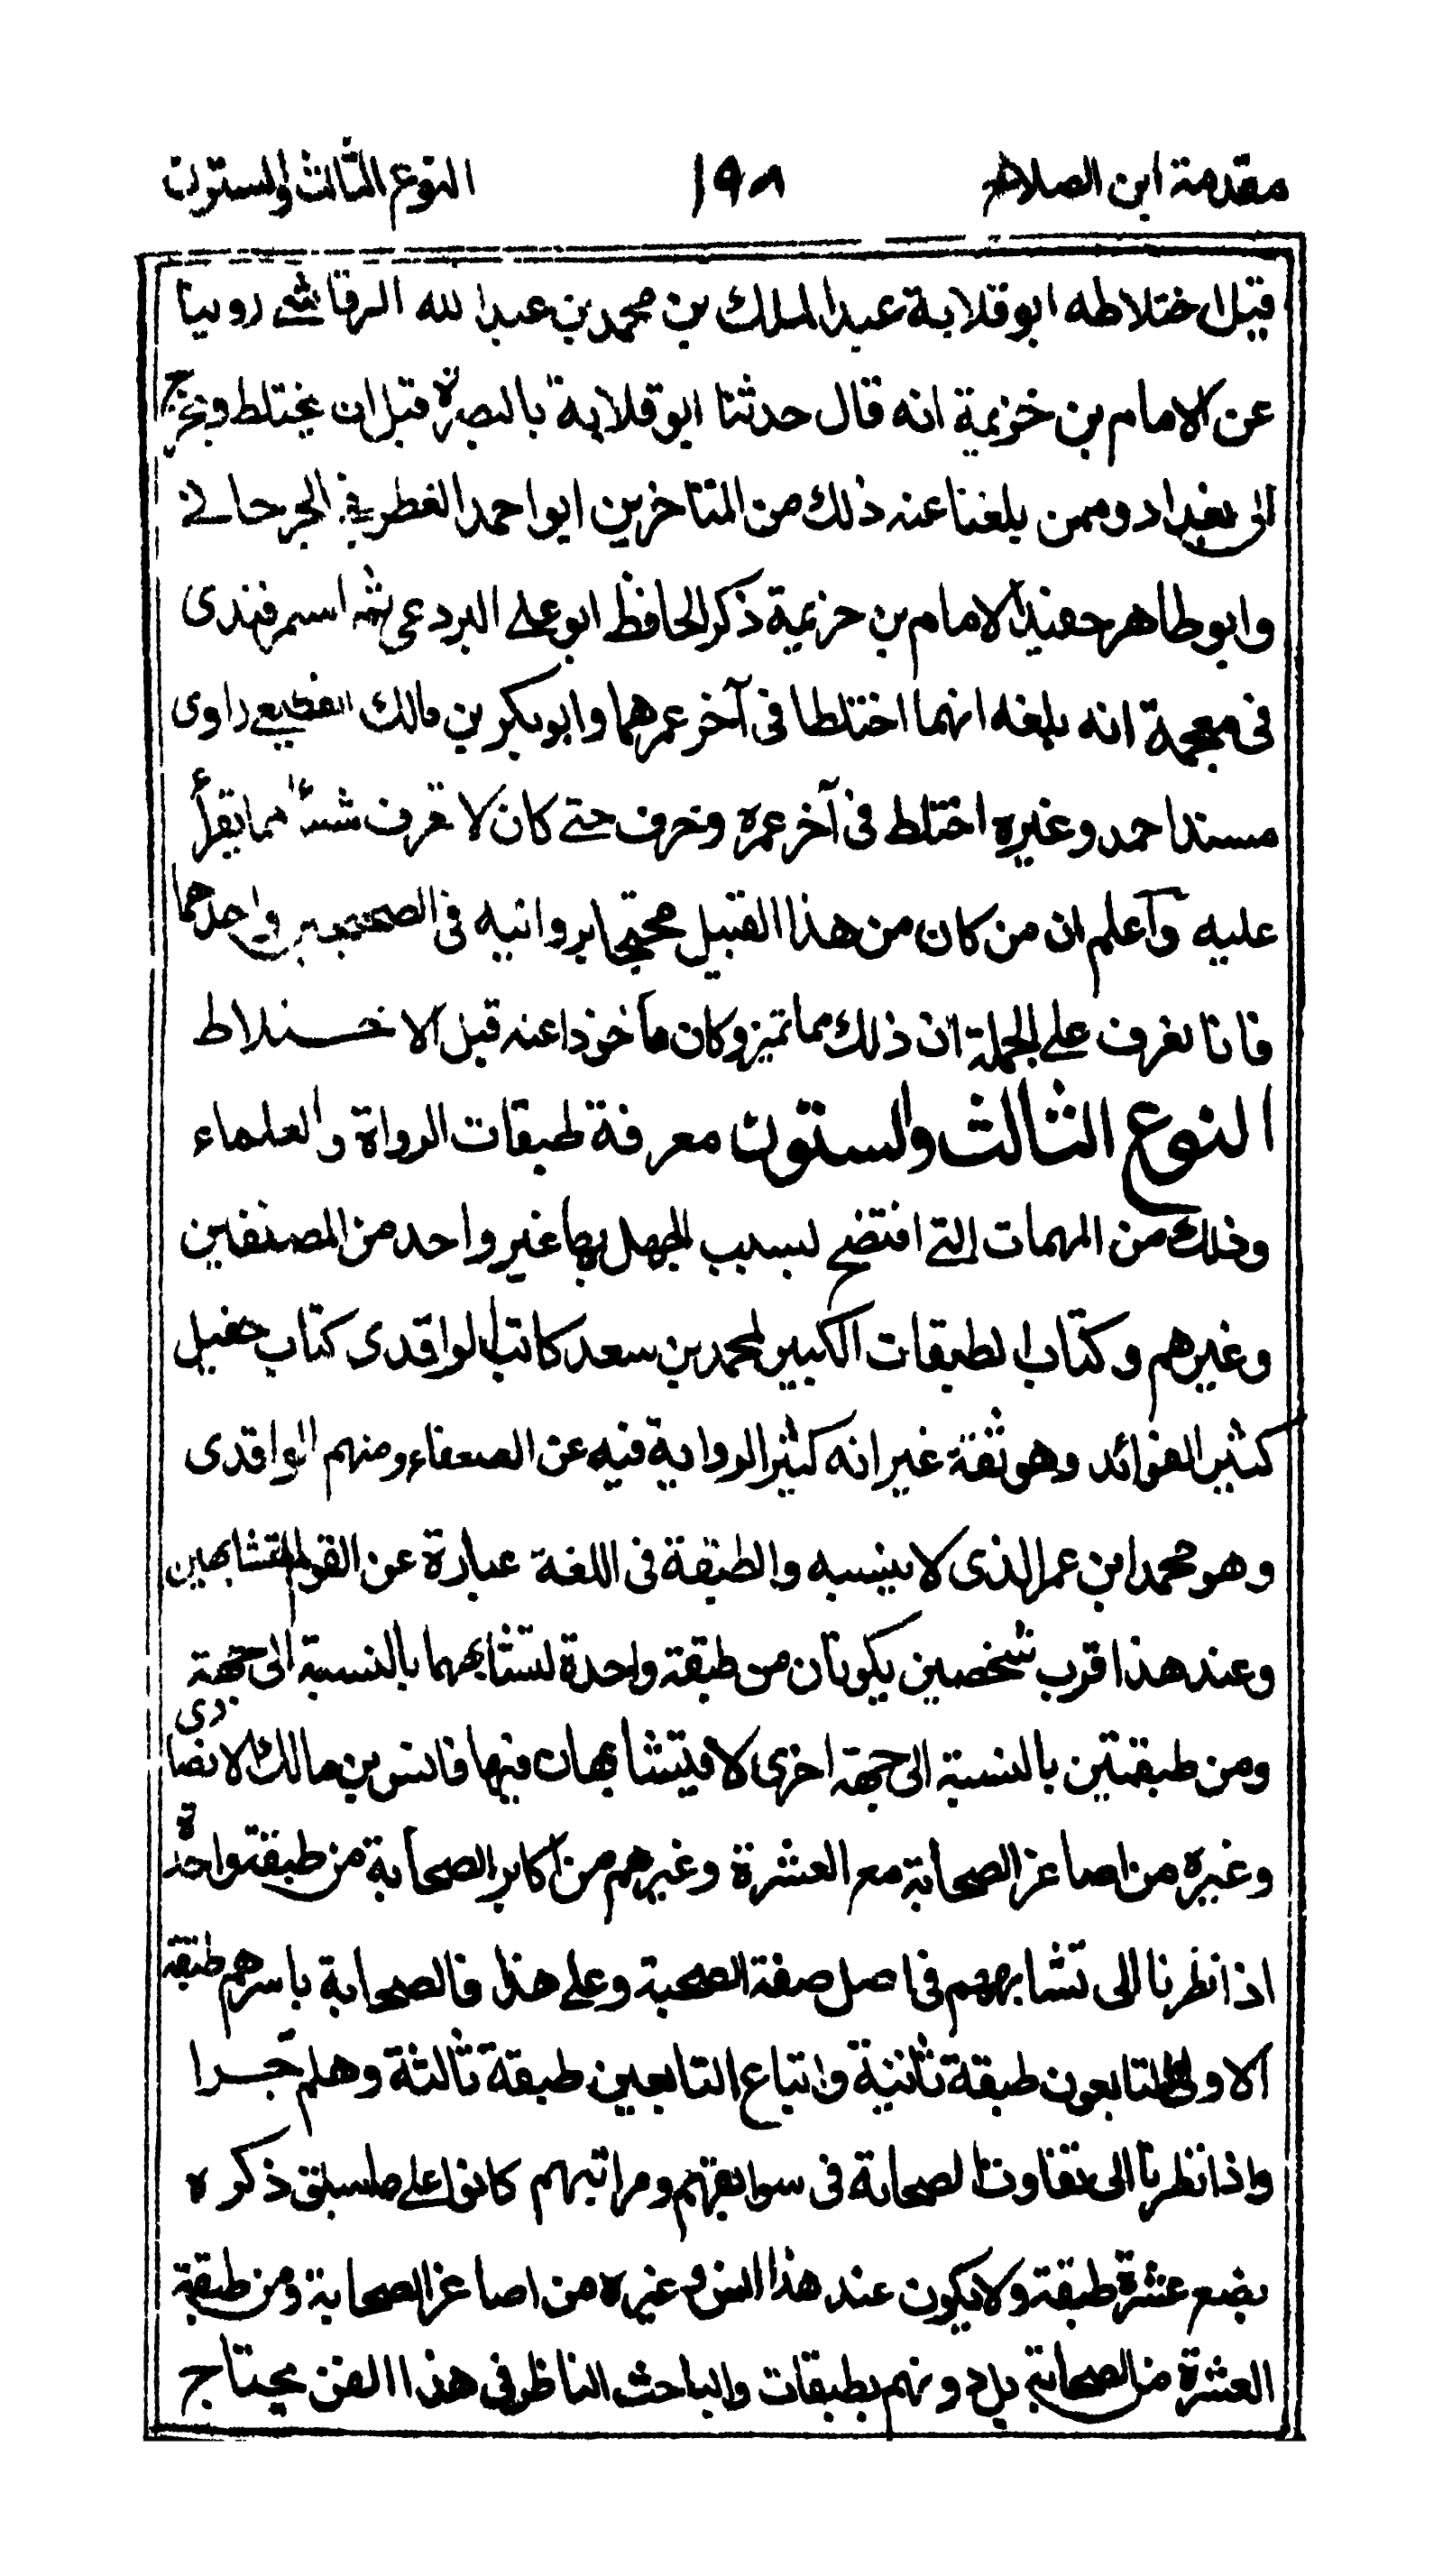 مقدمة ابن الصلاح ١٩٨ النوع الثالث والستون
قبل اختلاطه ابو قلابة عبد الملك بن محمد بن عبد الله الرقاشي روينا
عن الامام بن خزيمة انه قال حدثنا ابو قلابة بالبصرة قبل ان يختلط ويخرج
الى بغداد وممن بلغنا عنه ذلك من المتاخرين ابو احمد الغطريفي الجرجاني
وابو طاهر حفيد الامام بن خزيمة ذكر الحافظ ابو علي البردعي ثم السمرقندى
فى معجمة انه بلغه انهما اختلطا فى آخر عمرهما وابو بكر بن مالك القطيعي راوى
مسند احمد وغيره اختلط فى آخر عمره وخرف حتى كان لا يعرف شيئا مما يقرأ
عليه وآعلم ان من كان من هذا القبيل محتجا بروايته فى الصحيحين واحدهما
فانا نعرف على الجملة ان ذلك مما تميز وكان ماخوذا عنه قبل الاختلاط
النوع الثالث والستون معرفة طبقات الرواة والعلماء
وذلك من المهمات التي افتضح لسبب الجهل بها غير واحد من المصنفين
وغيرهم وكتاب الطبقات الكبير لمحمد بن سعد كاتب الواقدى كتاب حفيل
كثير الفوائد وهو ثقة غير انه كثير الرواية فيه عن الضعفاء ومنهم الواقدى
وهو محمد ابن عمر الذى لا ينسبه والطبقة فى اللغة عبارة عن القوم المتشابهين
وعند هذا قرب شخصين يكونان من طبقة واحدة لتشابههما بالنسبة الى جهة
ومن طبقتين بالنسبة الى جهة اخرى لا يتشابهان فيها فانس بن مالك الانصارى
وغيره من اصاغر الصحابة مع العشرة وغيرهم من اكابر الصحابة من طبقة واحدة
اذا نظرنا الى تشابههم فى اصل صفة الصحبة وعلى هذا فالصحابة باسرهم طبقة
الاولى والتابعون طبقة ثانية واتباع التابعين طبقة ثالثة وهلم جرا
واذا نظرنا الى تفاوت الصحابة فى سوابقهم ومراتبهم كانوا على ما سبق ذكره
بضع عشرة طبقة ولا يكون عند هذا انس وغيره من اصاغر الصحابة ومن طبقة
العشرة من الصحابة بل دونهم بطبقات والباحث الناظر فى هذا الفن يحتاج